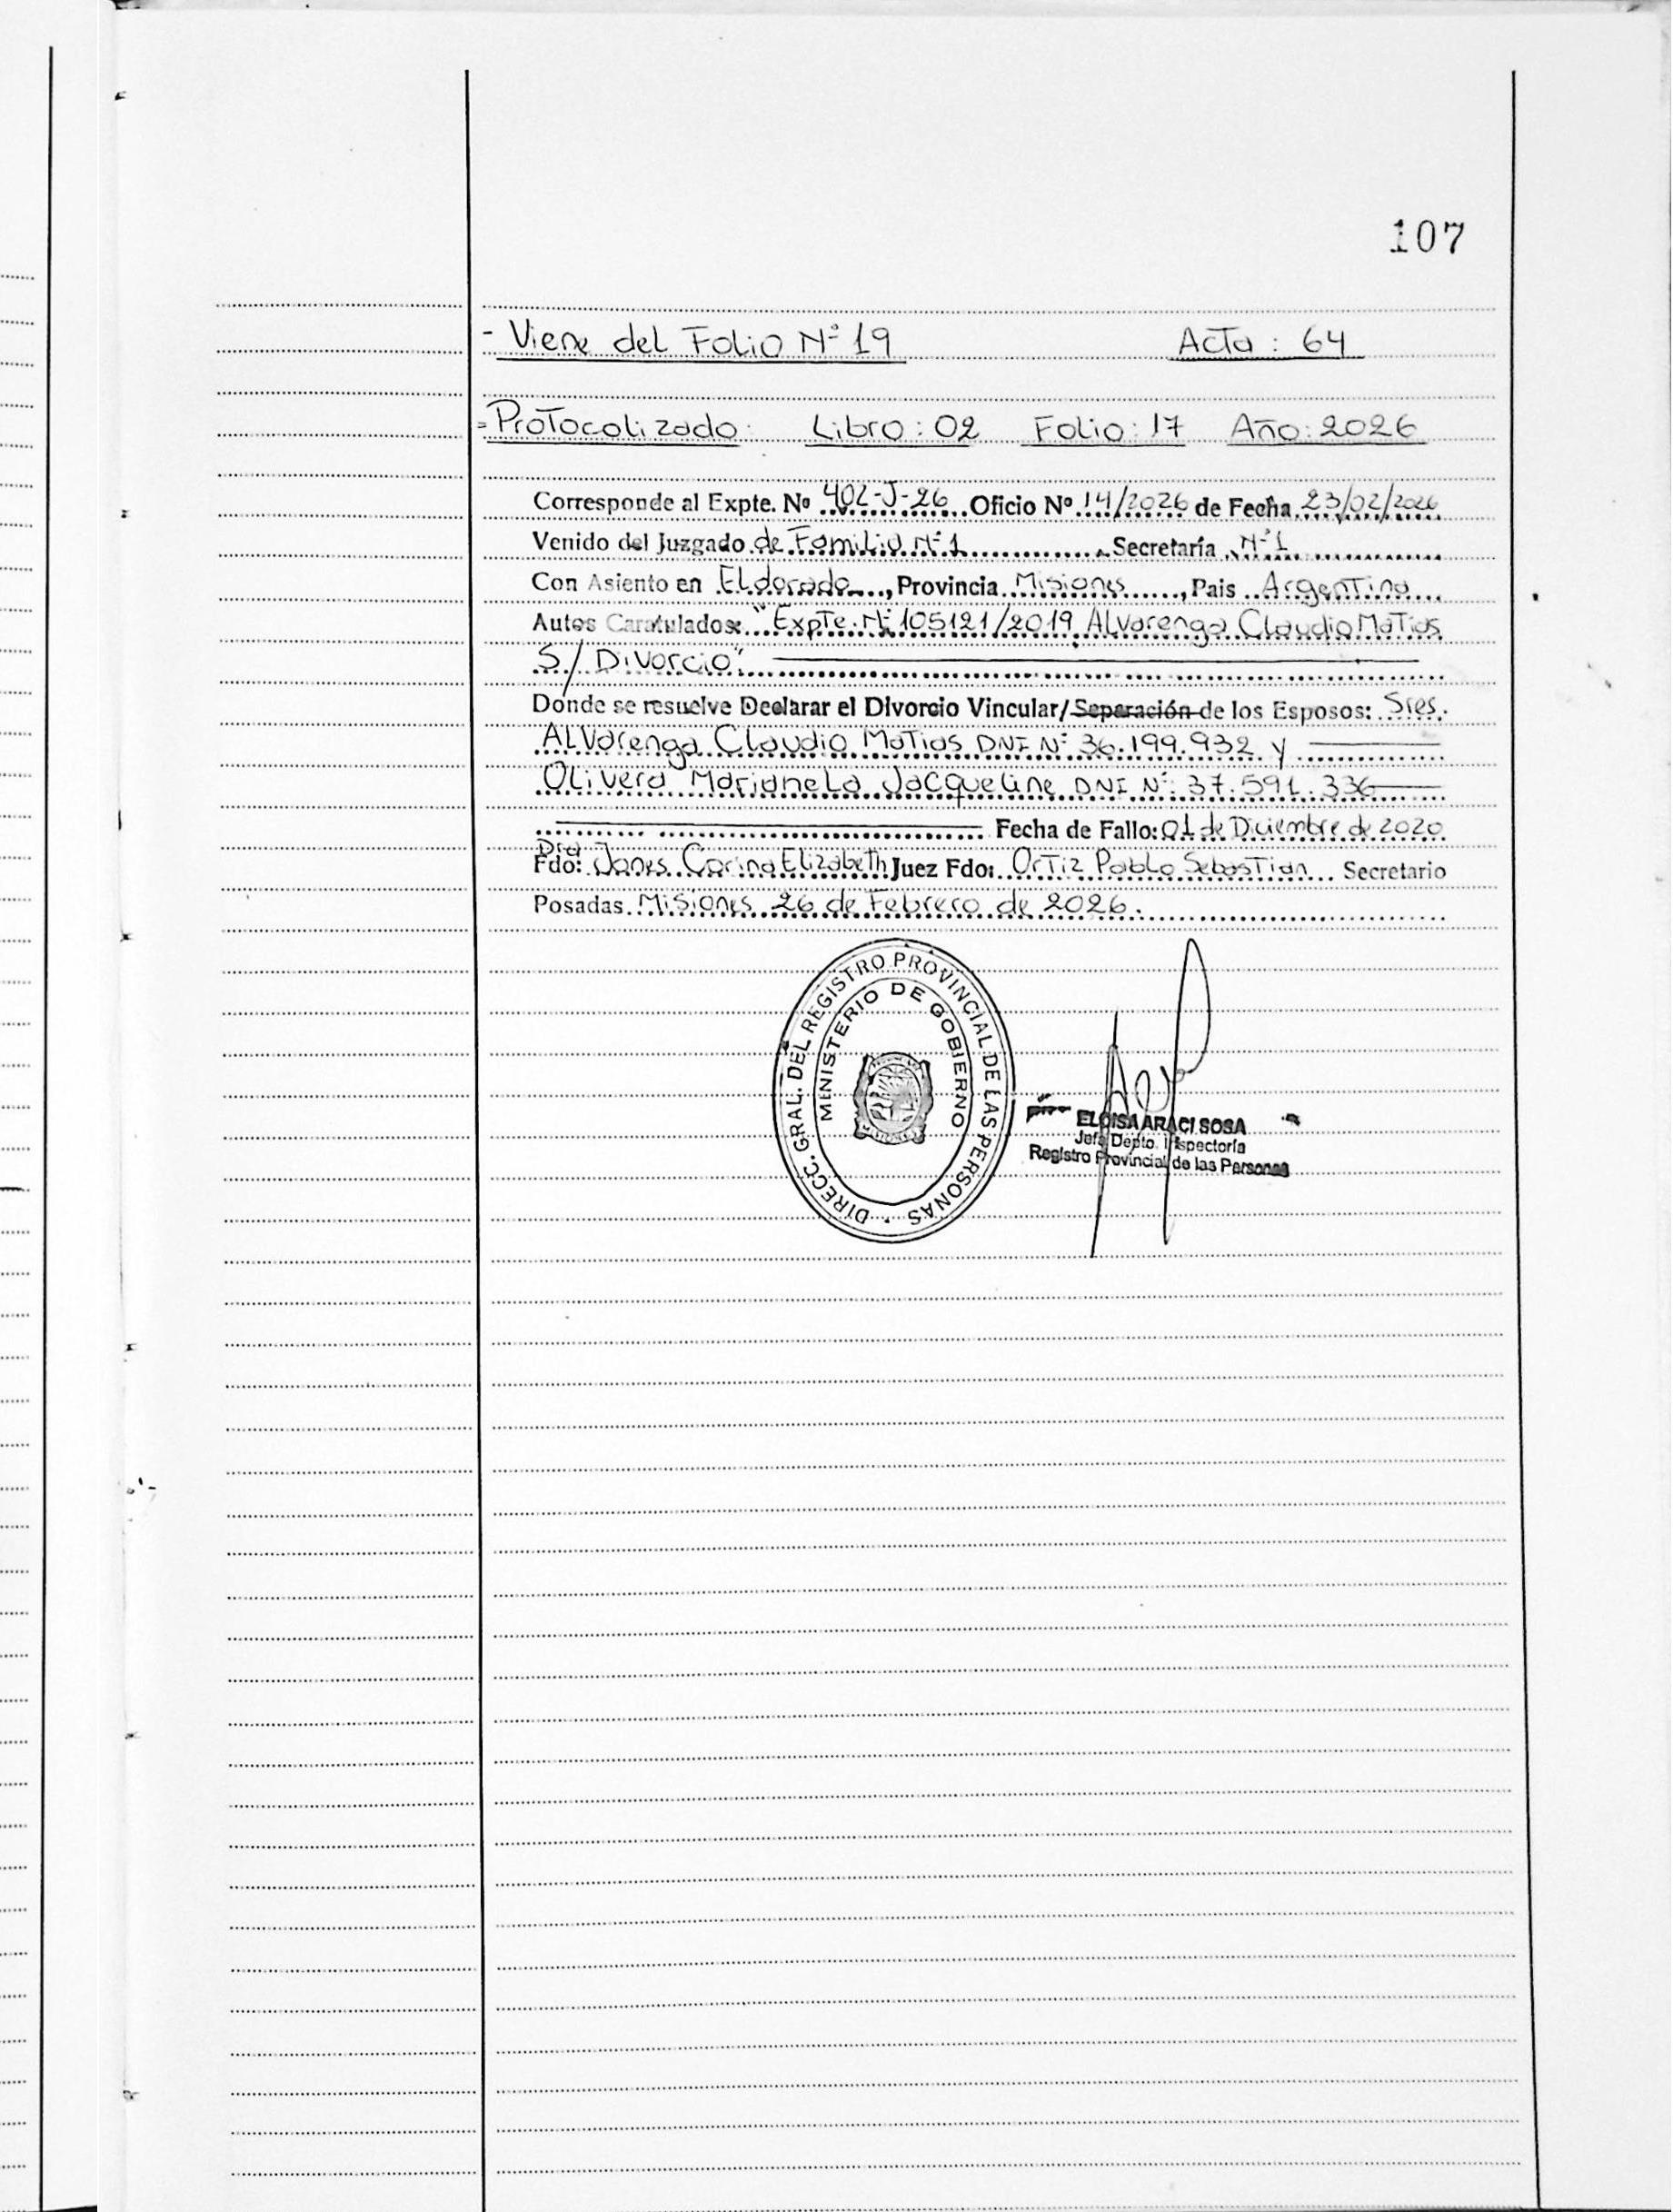 107
- Viene del Folio Nº 19 Acta : 64
= Protocolizado: Libro : 02 Folio: 17 Año: 2026
Corresponde al Expte. Nº 402-J-26 Oficio Nº 14/2026 de Fecha 23/02/2026
Venido del Juzgado de Familia Nº 1 Secretaría Nº 1
Con Asiento en Eldorado, Provincia Misiones, Pais Argentina
Autos Caratulados: "Expte. Nº 105121/2019 Alvarenga Claudio Matias
S/ Divorcio"
Donde se resuelve Declarar el Divorcio Vincular/Separación de los Esposos: Sres.
Alvarenga Claudio Matias DNI Nº 36.199.932 y
Olivera Marianela Jacqueline DNI Nº 37.591.336
Fecha de Fallo: 01 de Diciembre de 2020
Fdo: Dra Jones Carina Elizabeth Juez Fdo: Ortiz Pablo Sebastian Secretario
Posadas Misiones 26 de Febrero de 2026.
DIRECC. GRAL. DEL REGISTRO PROVINCIAL DE LAS PERSONAS
MINISTERIO DE GOBIERNO
ELOISA ARACI SOSA
Jefa Depto. Inspectoría
Registro Provincial de las Personas